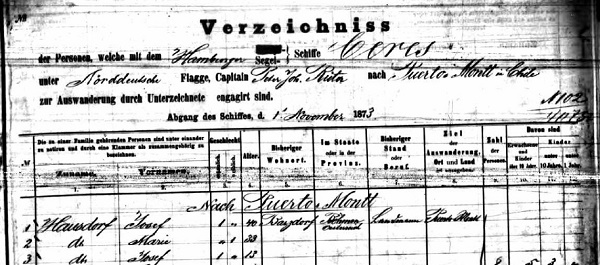 №
Verzeichniss
der Personen, welche mit dem Hamburger Segel- Schiffe Ceres
unter Norddeutsche Flagge, Capitain Joh. nach Puerto Montt in Chile
zur Auswanderung durch Unterzeichnete engagirt sind.
№ 102
Abgang des Schiffes, d. 1 November 1873
Die zu einer Familie gehörenden Personen sind unter einander zu notiren und durch eine Klammer als zusammengehörig zu bezeichnen.
Zuname. Vornamen.
Geschlecht
Alter.
Bisheriger Wohnort.
Im Staate oder in der Provinz.
Bisheriger Stand oder Beruf.
Ziel der Auswanderung, Ort und Land ist anzugeben.
Zahl der Personen.
Davon sind
Erwachsene und Kinder über 10 Jahre.
Kinder
unter 10 Jahre. 1 Jahr.
Nach Puerto Montt
1 Haussdorf Josef 1 " 40 Böhmen Landmann Puerto Montt
2 do Marie " 1 39
3 do Josef 1 " 13